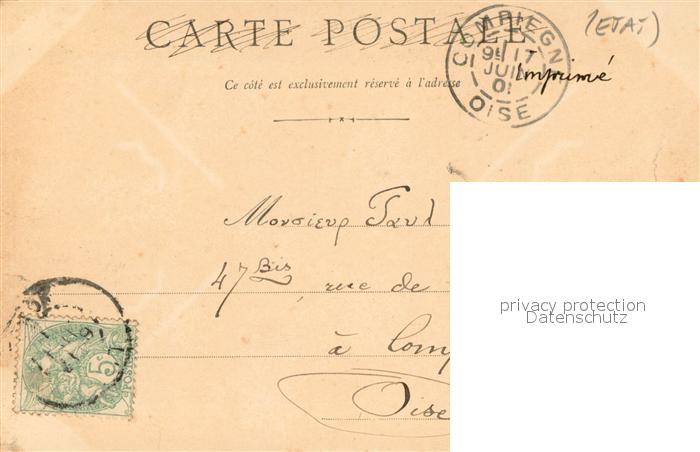 CARTE POSTALE
(ETAT)
Imprimé
COMPIEGN
9E 17
JUIL
01
OISE
Ce côté est exclusivement réservé à l'adresse
Monsieur Paul
47 Bis rue de
à Comp
Oise
5c
privacy protection
Datenschutz